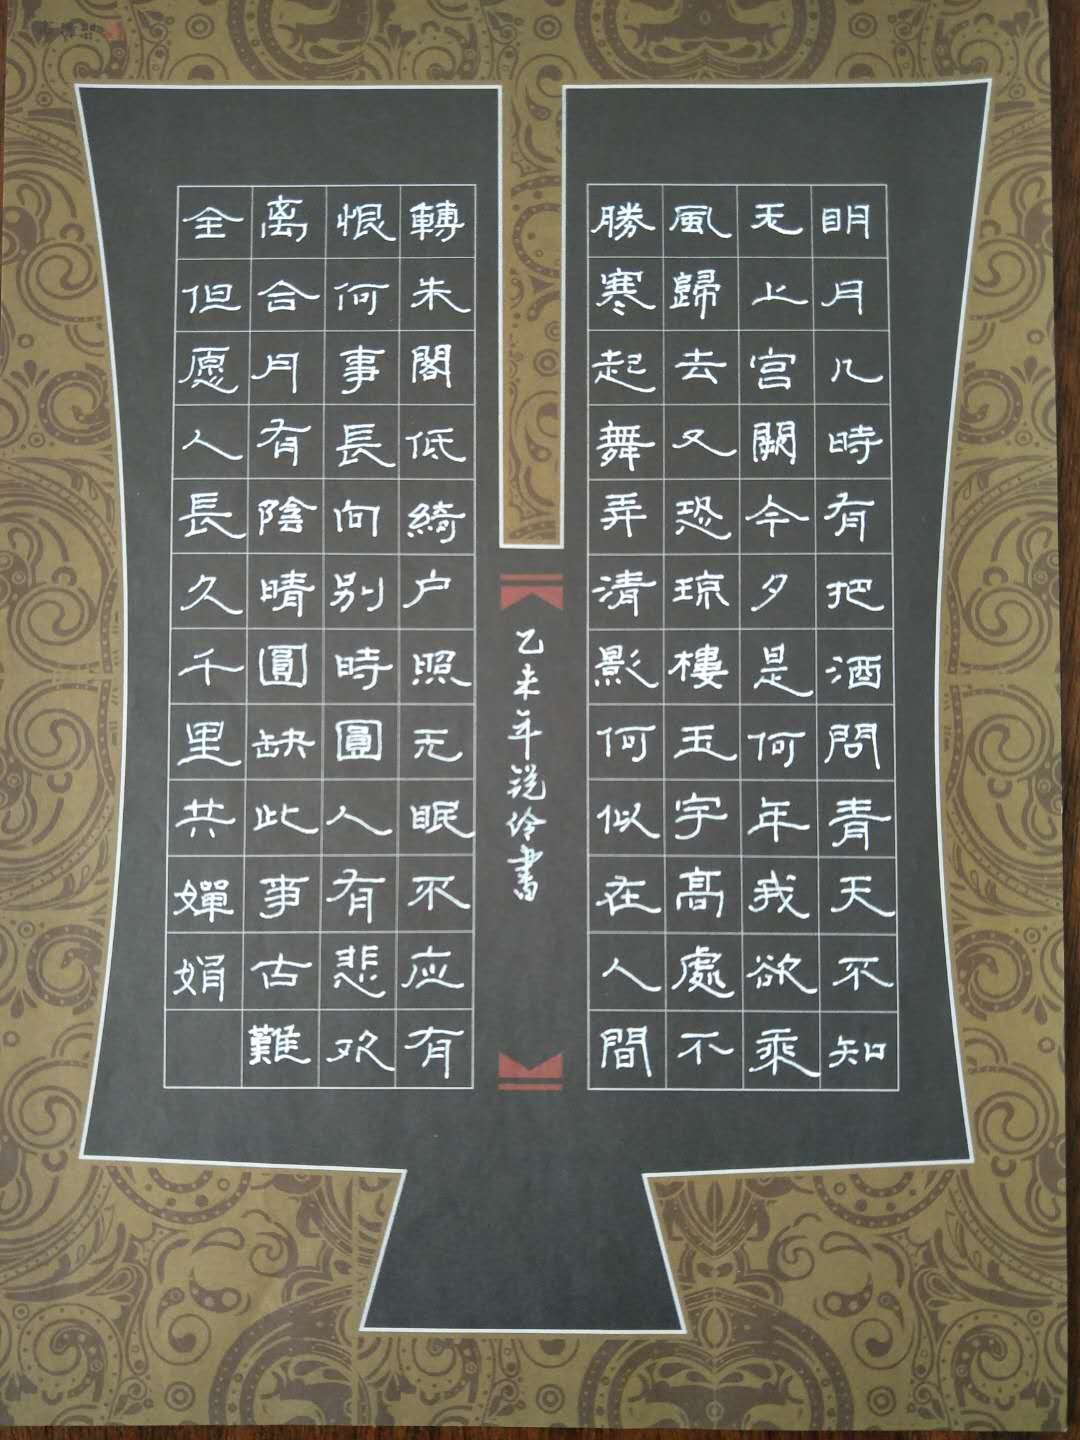 明月几時有把酒問青天不知
天上宫闕今夕是何年我欲乘
風歸去又恐琼樓玉宇高處不
勝寒起舞弄清影何似在人間
轉朱閣低綺户照无眠不应有
恨何事長向别時圓人有悲欢
离合月有陰晴圓缺此事古難
全但愿人長久千里共嬋娟
乙未年锐伶書